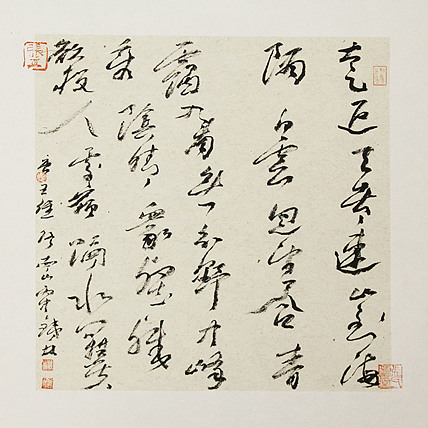 太乙近天都連山到海
隅白雲回望合青
靄入看無分野中峰
變陰晴衆壑殊
欲投人處宿隔水問樵夫
王維